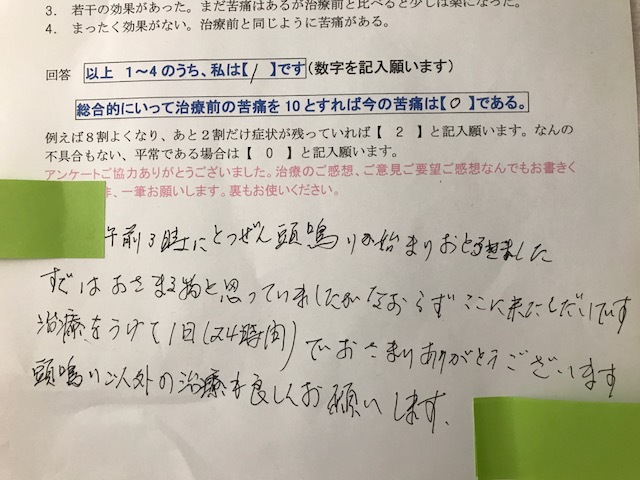 3. 若干の効果があった。まだ苦痛はあるが治療前と比べると少しは楽になった。
4. まったく効果がない。治療前と同じように苦痛がある。
回答 以上 1～4のうち、私は【 1 】です(数字を記入願います)
総合的にいって治療前の苦痛を10とすれば今の苦痛は【 0 】である。
例えば8割よくなり、あと2割だけ症状が残っていれば【 2 】と記入願います。なんの
不具合もない、平常である場合は【 0 】と記入願います。
アンケートご協力ありがとうございました。治療のご感想、ご意見ご要望ご感想なんでもお書きく
、一筆お願いします。裏もお使いください。
午前3時にとつぜん頭鳴りが始まりおどろきました
すぐはおさまる物と思っていましたがなおらずここに来たしだいです
治療をうけて1日(24時間)でおさまりありがとうございます
頭鳴り以外の治療も良しくお願いします。